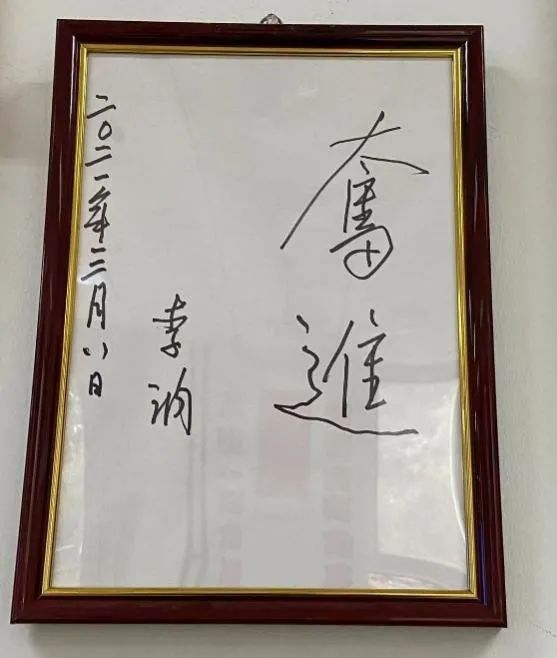 奮進
李訥
二〇二一年三月八日